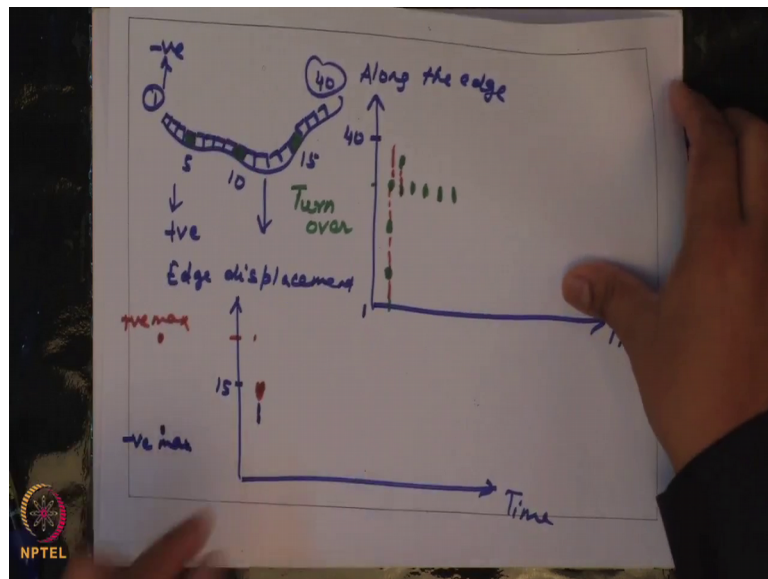 -ve
1
40
Along the edge
40
5
10
15
Turn
over
+ve
Edge displacement
1
+ve max
15
-ve max
Time
NPTEL